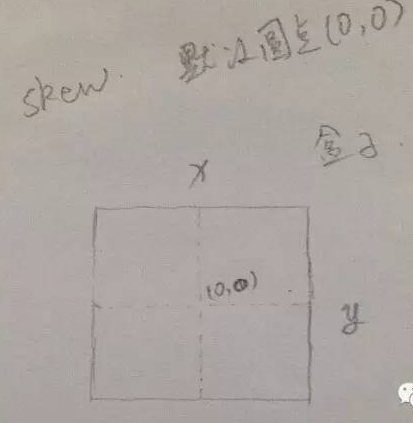 skew. 默认圆点(0,0)
盒子.
x
(0,0)
y